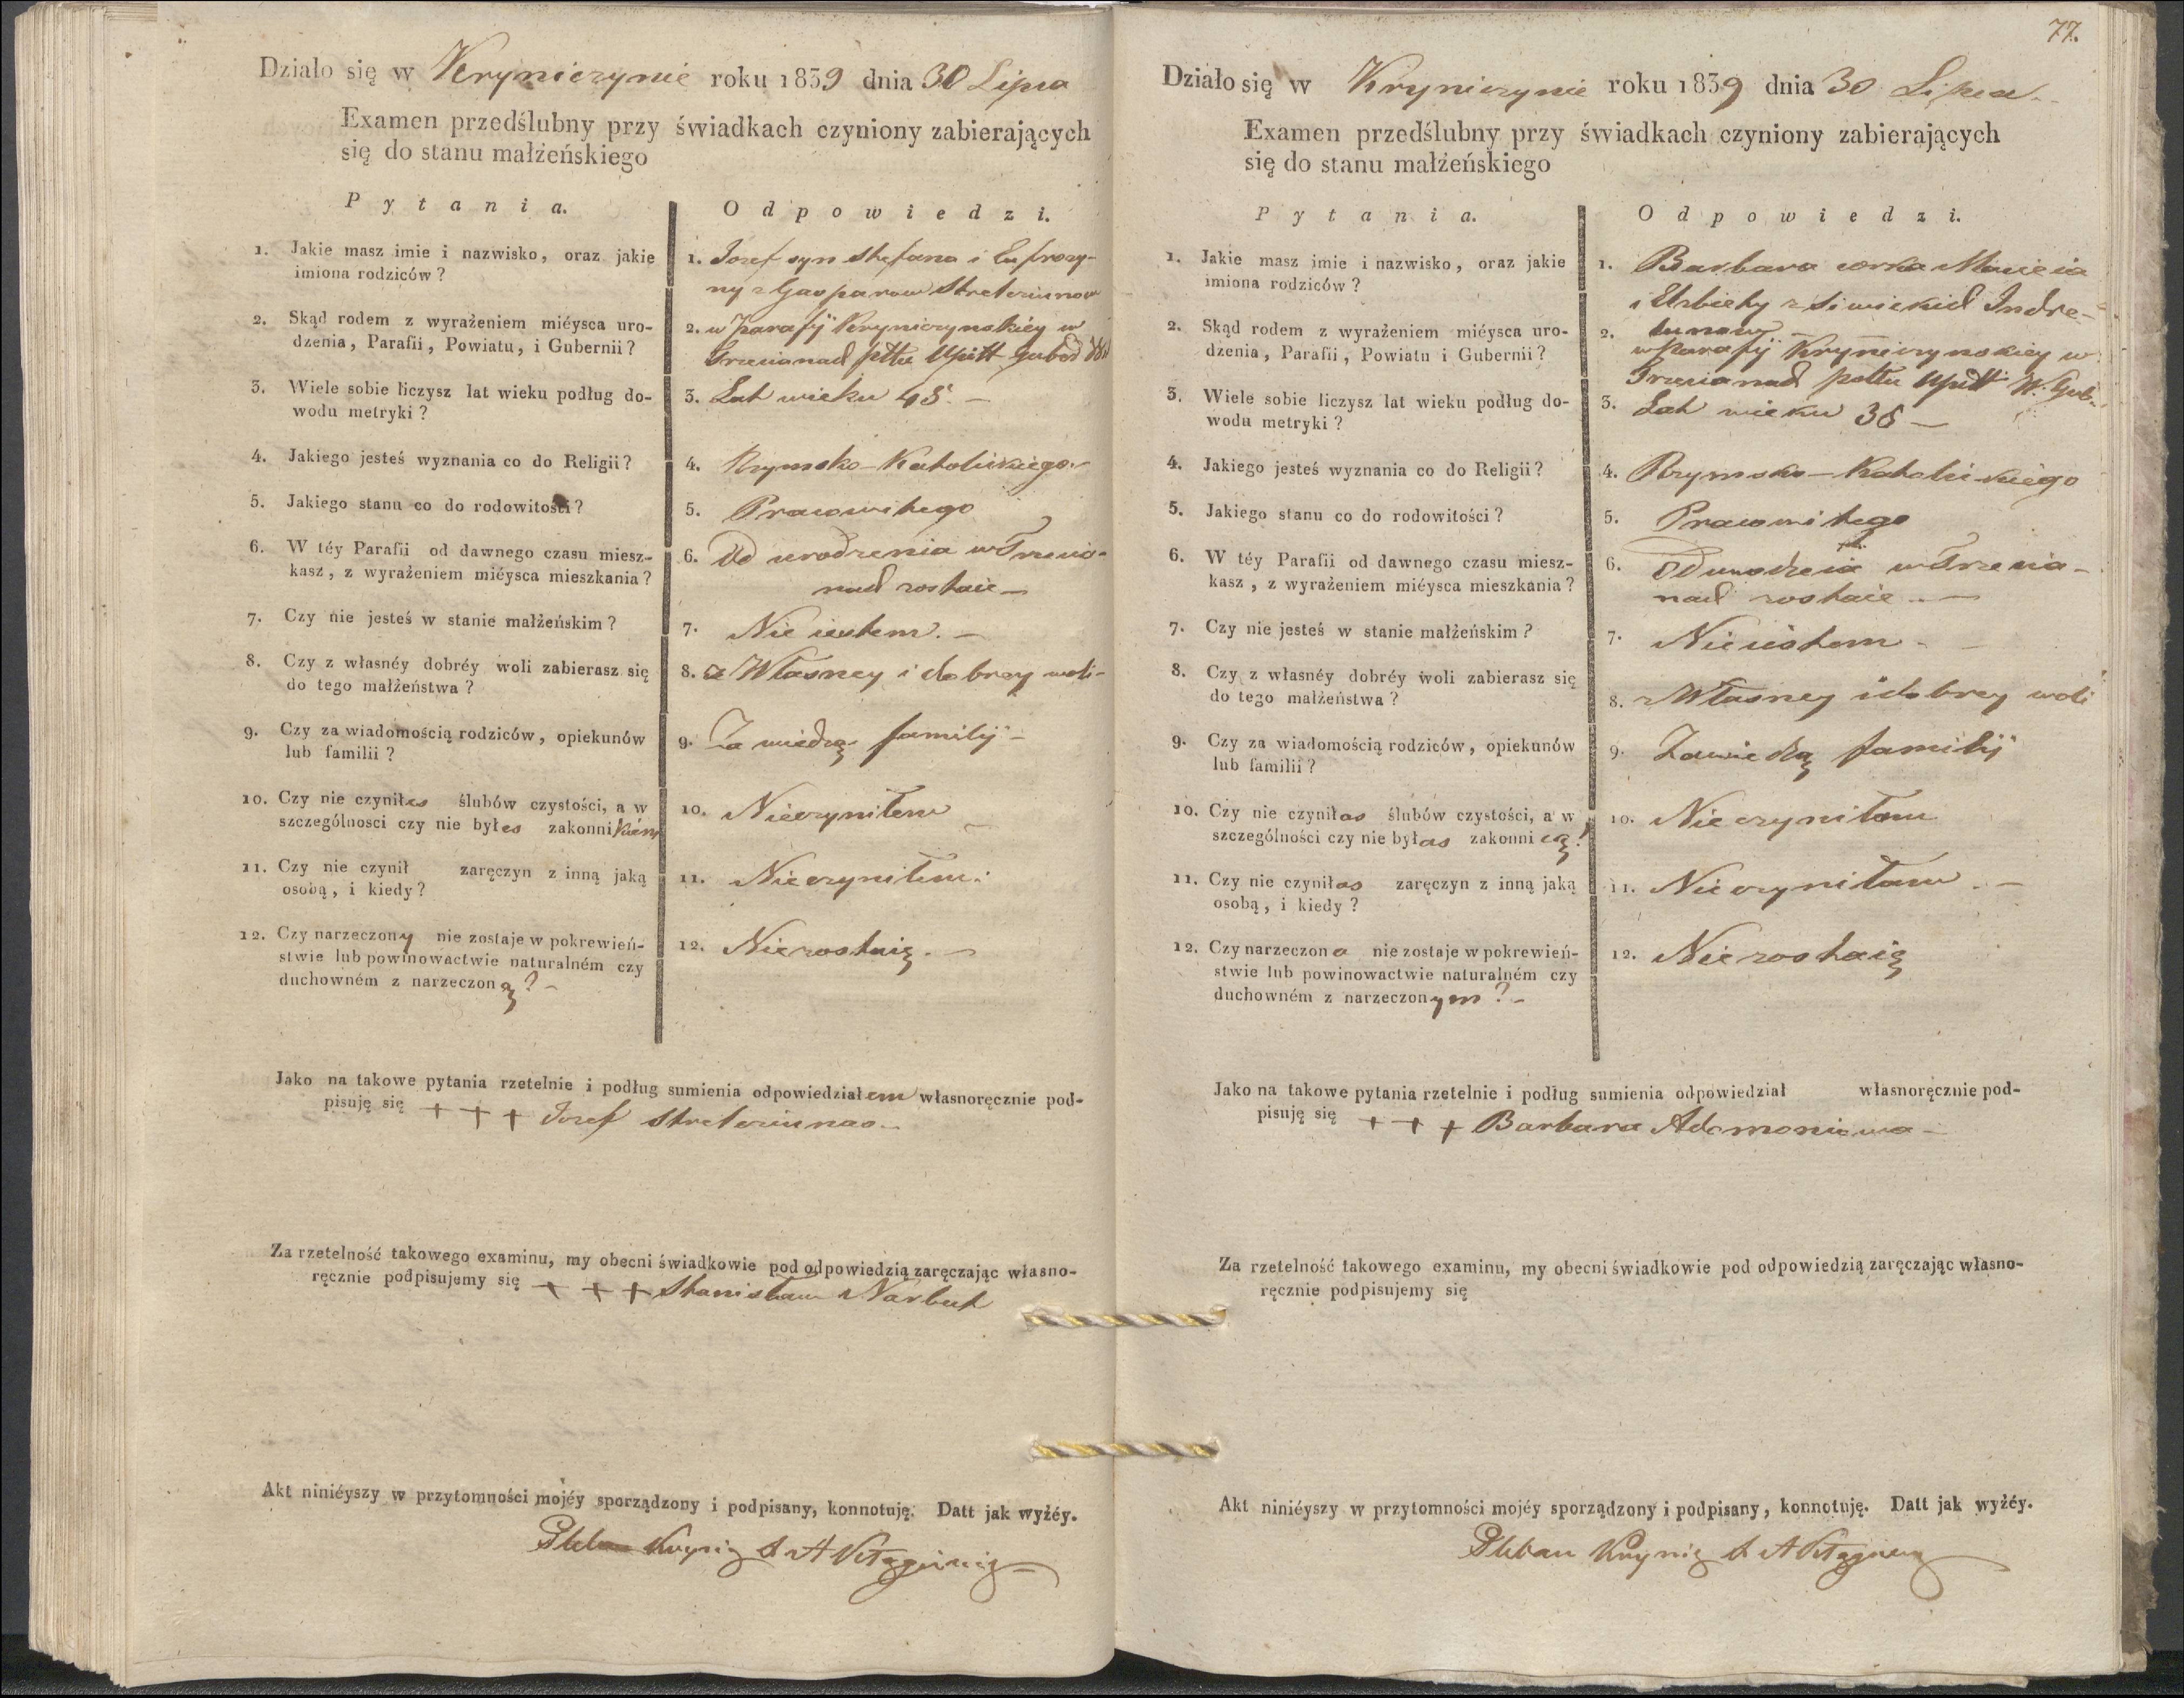 Działo się w Kryniczynie roku 1839 dnia 30 Lipca
Examen przedślubny przy świadkach czyniony zabierających
się do stanu małżeńskiego
Pytania. Odpowiedzi.
1. Jakie masz imie i nazwisko, oraz jakie
imiona rodziców?
1. Jozef syn Stefana i Eufrozy-
ny z Gasparow Streteriunow
2. Skąd rodem z wyrażeniem miéysca uro-
dzenia, Parafii, Powiatu, i Gubernii?
2. w Parafÿ Kryniczynskiey w
Trzecianach pttu Upitt Gub
3. Wiele sobie liczysz lat wieku podług do-
wodu metryki?
3. Lat wieku 45 –
4. Jakiego jesteś wyznania co do Religii?
4. Rzymsko-Katolickiego
5. Jakiego stanu co do rodowitości?
5. Pracowitego
6. W téy Parafii od dawnego czasu miesz-
kasz, z wyrażeniem miéysca mieszkania?
6. Od urodzenia w Trzecia-
nach zostaie –
7. Czy nie jesteś w stanie małżeńskim?
7. Nie iestem. –
8. Czy z własnéy dobréy woli zabierasz się
do tego małżeństwa?
8. z Własney i dobrey woli –
9. Czy za wiadomością rodziców, opiekunów
lub familii?
9. Za wiedzą familÿ –
10. Czy nie czyniłes ślubów czystości, a w
szczególnosci czy nie byłes zakonnikiem
10. Nieczyniłem –
11. Czy nie czynił zaręczyn z inną jaką
osobą, i kiedy?
11. Nieczyniłem.
12. Czy narzeczony nie zostaje w pokrewień-
stwie lub powinowactwie naturalném czy
duchowném z narzeczoną? –
12. Niezostaię. –
Jako na takowe pytania rzetelnie i podług sumienia odpowiedziałem własnoręcznie pod-
pisuję się + + + Jozef Streteriunas –
Za rzetelność takowego examinu, my obecni świadkowie pod odpowiedzią zaręczając własno-
ręcznie podpisujemy się + + + Stanisław Narbut
Akt niniéyszy w przytomności mojéy sporządzony i podpisany, konnotuję. Datt jak wyżéy.
Pleban Krynicz
77.
Działo się w Kryniczynie roku 1839 dnia 30 Lipca
Examen przedślubny przy świadkach czyniony zabierających
się do stanu małżeńskiego
Pytania. Odpowiedzi.
1. Jakie masz imie i nazwisko, oraz jakie
imiona rodziców?
1. Barbara corka Macieia
i Elzbiety z Siwickich Indre-
lunow
2. Skąd rodem z wyrażeniem miéysca uro-
dzenia, Parafii, Powiatu i Gubernii?
2. w Parafÿ Kryniczynskiey w
Trzecianach pottu Upitt W. Gub.
3. Wiele sobie liczysz lat wieku podług do-
wodu metryki?
3. Lat wieku 38 –
4. Jakiego jesteś wyznania co do Religii?
4. Rzymsko-Katolickiego
5. Jakiego stanu co do rodowitości?
5. Pracowitego
6. W téy Parafii od dawnego czasu miesz-
kasz, z wyrażeniem miéysca mieszkania?
6. Od urodzenia w Trzecia-
nach zostaie –
7. Czy nie jesteś w stanie małżeńskim?
7. Nie iestem –
8. Czy z własnéy dobréy woli zabierasz się
do tego małżeństwa?
8. z Własney i dobrey woli
9. Czy za wiadomością rodziców, opiekunów
lub familii?
9. Zawiedzą familÿ
10. Czy nie czyniłas ślubów czystości, a w
szczególności czy nie byłas zakonnicą?
10. Nieczyniłam
11. Czy nie czyniłas zaręczyn z inną jaką
osobą, i kiedy?
11. Nieczyniłam –
12. Czy narzeczona nie zostaje w pokrewień-
stwie lub powinowactwie naturalném czy
duchowném z narzeczonym? –
12. Niezostaię
Jako na takowe pytania rzetelnie i podług sumienia odpowiedział własnoręcznie pod-
pisuję się + + + Barbara Adomoniowa –
Za rzetelność takowego examinu, my obecni świadkowie pod odpowiedzią zaręczając własno-
ręcznie podpisujemy się
Akt niniéyszy w przytomności mojéy sporządzony i podpisany, konnotuję. Datt jak wyżéy.
Pleban Krynicz